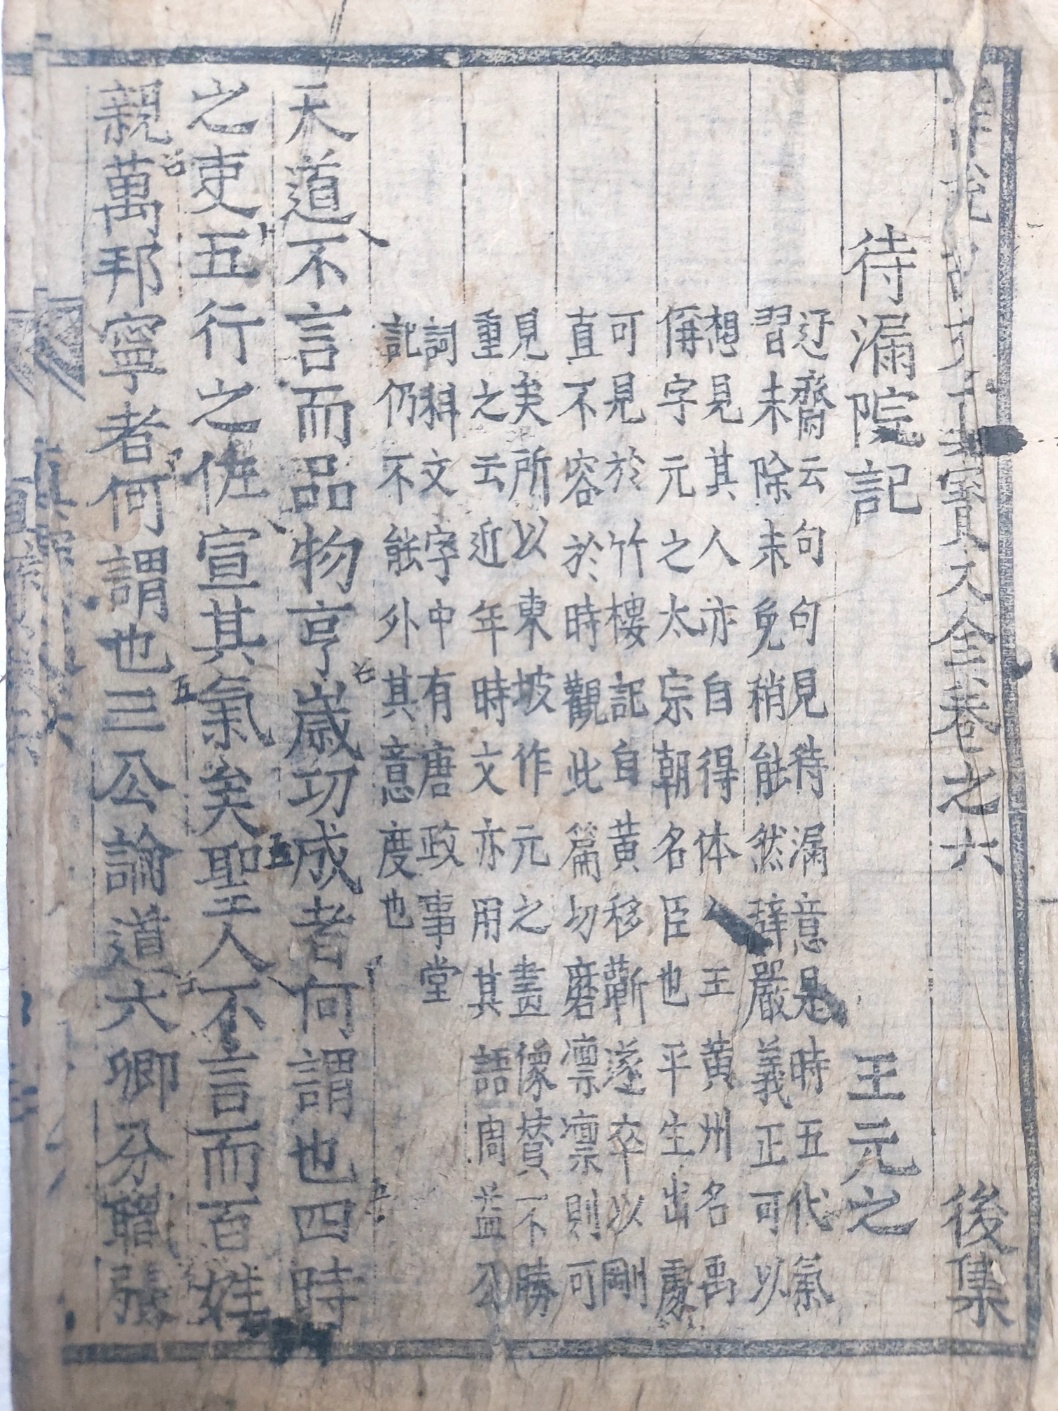 古文真寶大全卷之六 後集
待漏院記 王元之
迂齋云句句見待漏意是時五代氣
習未除未免稍能然辞嚴義正可以
想見其人亦自得体人王黄州名禹
偁字元之太宗朝名臣也平生出處
可見於竹樓記自黄移蘄遂卒以剛
直不容於時觀此篇切磨凛凛則可
見矣所以東坡作元之畫像賛不勝
重之云近年時文亦用其語周益公
詞科文字中有唐政事堂
記仍不能外其意度也
天道不言而品物亨歳功成者何謂也四時
之吏五行之佐宣其氣矣聖人不言而百姓
親萬邦寧者何謂也三公論道六卿分職張